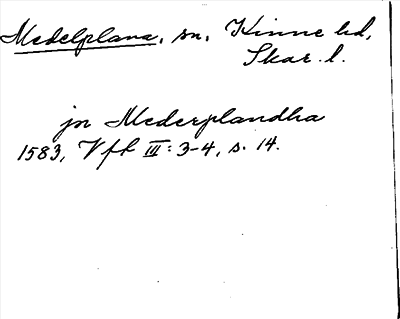 Medelplana, sn, Kinne hd,
Skar. l.
jn Mederplandha
1583, Vfk III: 3-4, s. 14.